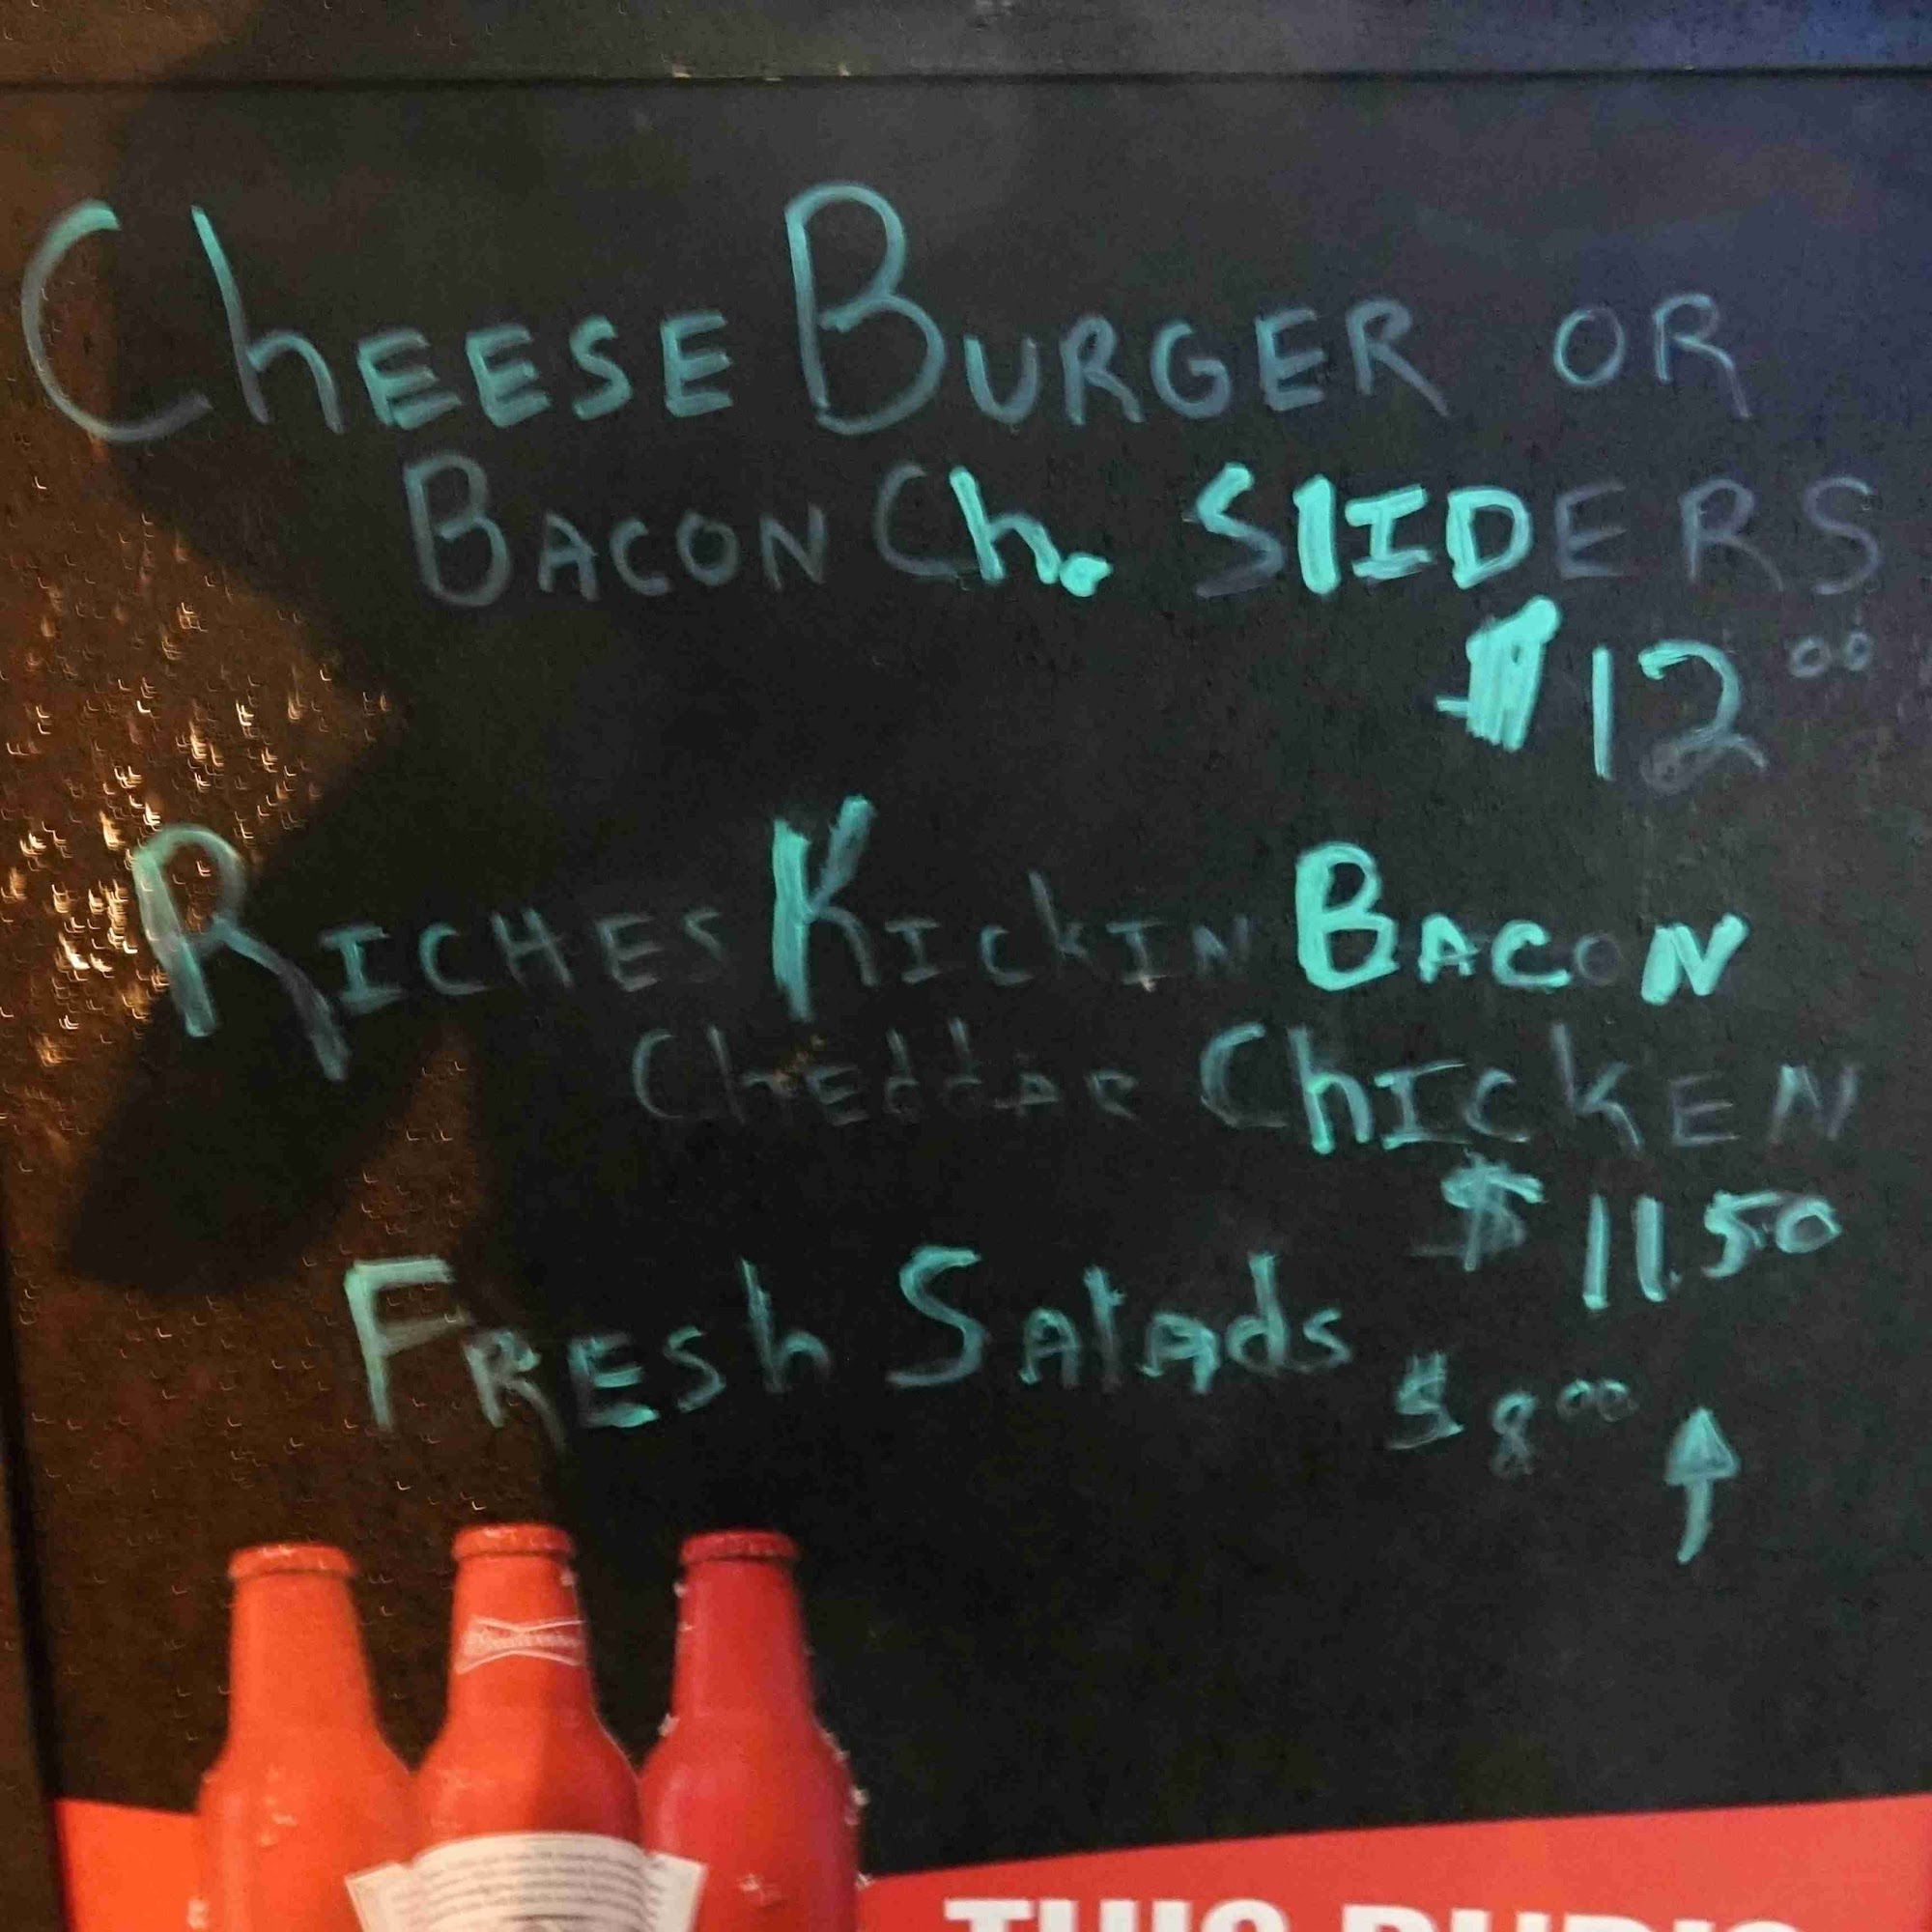 CheeseBurger or
Bacon Ch. Sliders
$12.00
Riches Kickin Bacon
Cheddar Chicken
$11.50
Fresh Salads
$8.00 ↑
Budweiser
THIS BUD'S